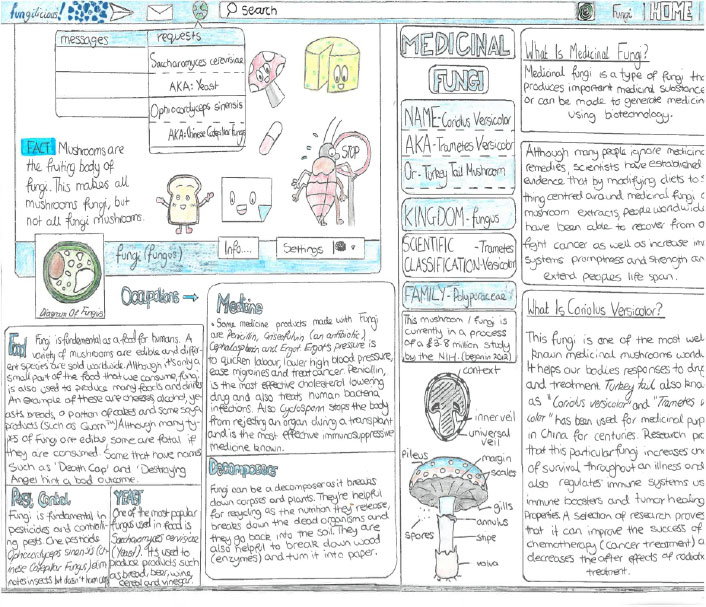 fungilicious!
search
Fungi
HOME
messages
requests
Saccharomyces cerevisiae
AKA: Yeast
Ophiocordyceps sinensis
AKA: Chinese Caterpillar Fungus
FACT: Mushrooms are
the fruiting body of
fungi. This makes all
mushrooms fungi, but
not all fungi mushrooms.
STOP
fungi (fungus)
Info....
Settings
Diagram Of Fungus
Occupations
Food
Fungi is fundamental as a food for humans. A
variety of mushrooms are edible and differ-
ent species are sold worldwide. Although it's only a
small part of the food that we consume, fungi
is also used to produce many foods and drinks
An example of these are cheeses, alcohol, ye-
asts, breads, a portion of cakes and some soya
products (such as Quorn™) Although many ty-
pes of fungi are edible some are fatal if
they are consumed. Some that have names
such as 'Death Cap' and 'Destroying
Angel' hint a bad outcome.
Pest Control
Fungi is fundamental in
pesticides and controlli-
ng pests. One pesticide
Ophiocordyceps sinensis (
nese Caterpillar Fungus)
insects but doesn't harm
YEAST
One of the most popular
fungus used in food is
Saccharomyces cerevisiae
(Yeast). It's used to
produce products such
as bread, beer, wine,
cereal and vinegar.
Medicine
Some medicine products made with Fungi
are Penicillin, Griseofulvin (an antibiotic)
Cephalosporin and Ergot. Ergot's pressure is
to quicken labour, lower high blood pressure,
ease migraines and treat cancer. Penicillin,
is the most effective cholesterol lowering
drug and also treats human bacteria
infections. Also Cyclosporin stops the body
from rejecting an organ during a transplant
and is the most effective immunosuppressive
medicine known.
Decomposers
Fungi can be a decomposer as it breaks
down corpses and plants. They're helpful
for recycling as the nutrition they release,
breaks down the dead organisms and
they go back into the soil. They are
also helpful to break down wood
(enzymes) and turn it into paper.
MEDICINAL
FUNGI
NAME-Coriolus Versicolor
AKA-Trametes Versicolor
Or-Turkey Tail Mushroom
KINGDOM-fungus
SCIENTIFIC -Trametes
CLASSIFICATION-Versicolor
FAMILY-Polyporaceae
This mushroom / fungi is
currently in a process
of a £5.8 million study
by the NIH. (began in 2012)
context
inner veil
universal
veil
pileus
margin
scales
gills
annulus
spores
stipe
volva
What Is Medicinal Fungi?
Medicinal fungi is a type of fungi tha
produces important medicinal substance
or can be made to generate medicin
using biotechnology.
Although many people ignore medicina
remedies, scientists have established
evidence that by modifying diets to s
thing centred around medicinal fungi
mushroom extracts, people worldwide
have been able to recover from o
fight cancer as well as increase im
systems promptness and strength an
extend peoples life span.
What Is Coriolus Versicolor?
This fungi is one of the most well
known medicinal mushrooms world
It helps our bodies responses to drug
and treatment. Turkey tail also kno
as "Coriolus versicolor" and "Trametes v
color" has been used for medicinal purp
in China for centuries. Research pro
that this particular fungi increases ch
of survival throughout an illness and
also regulates immune systems us
immune boosters and tumor healing
Properties. A selection of research proves
that it can improve the success of
chemotherapy (Cancer treatment) a
decreases the after effects of radiati
treatment.